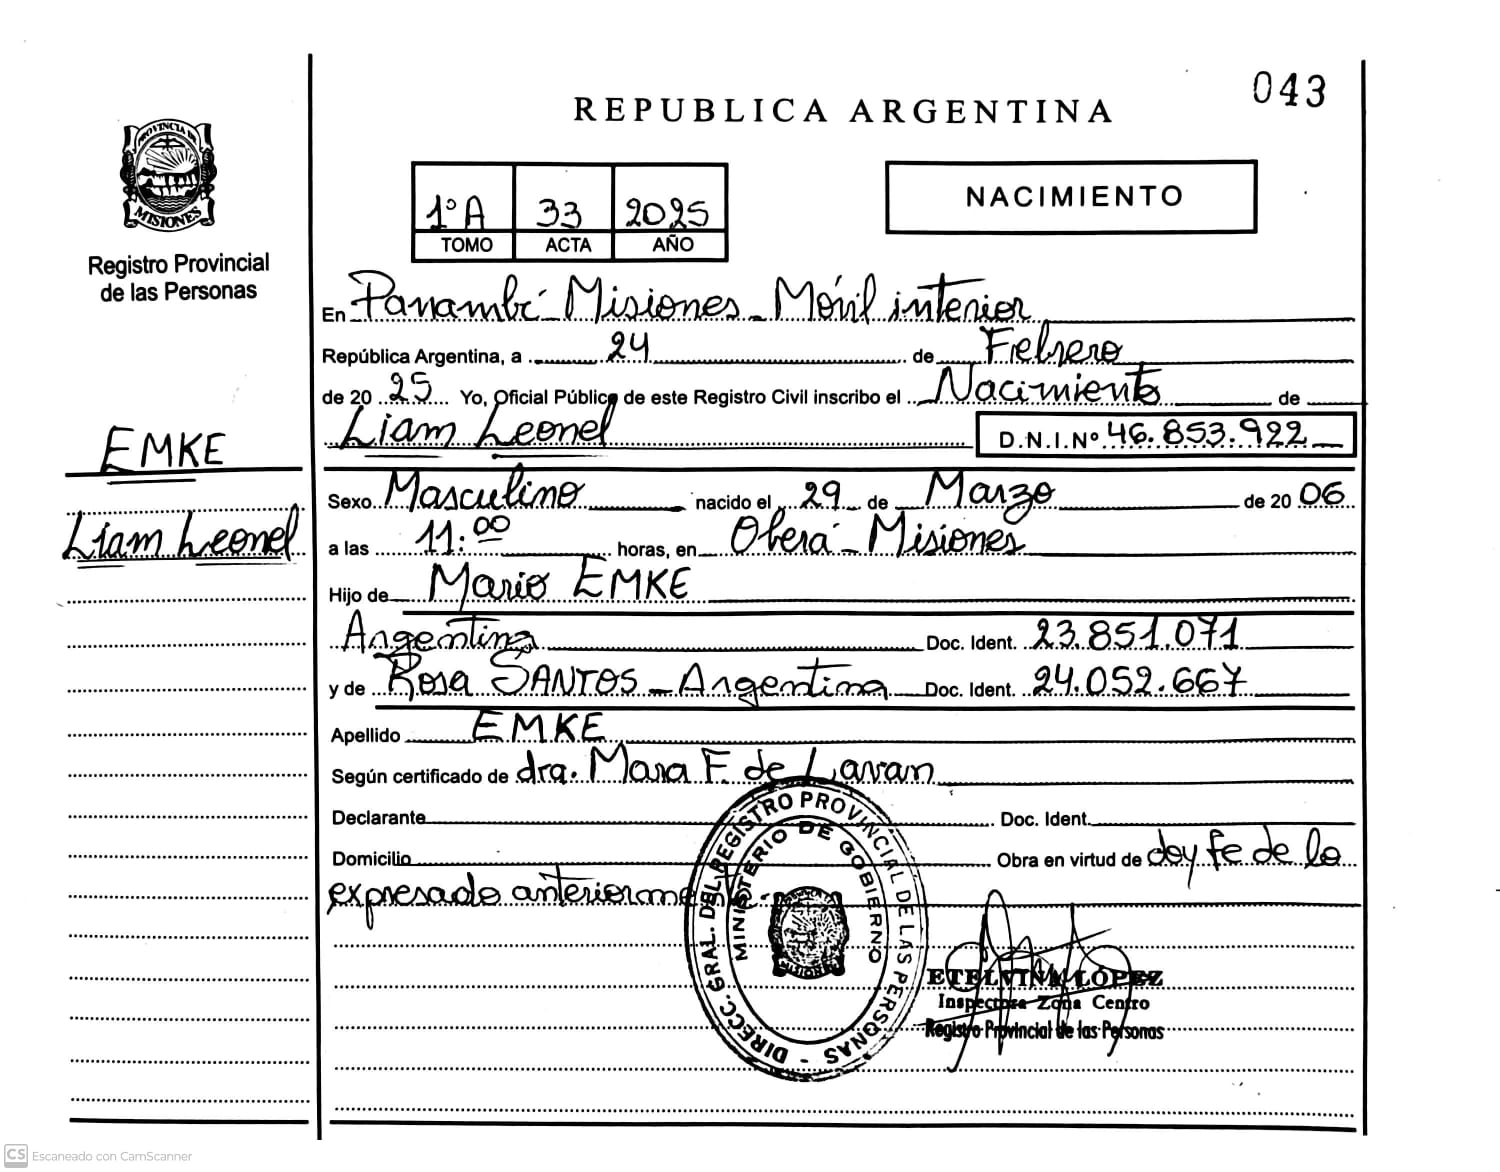 043
REPUBLICA ARGENTINA
PROVINCIA DE
MISIONES
Registro Provincial
de las Personas
1º A 33 2025
TOMO ACTA AÑO
NACIMIENTO
En Panambí - Misiones - Móvil interior
República Argentina, a 24 de Febrero
de 20 25 Yo, Oficial Público de este Registro Civil inscribo el Nacimiento de
Liam Leonel D.N.I.Nº 46.853.922
EMKE
Liam Leonel
Sexo Masculino nacido el 29 de Marzo de 20 06
a las 11:00 horas, en Oberá - Misiones
Hijo de Mario EMKE
Argentina Doc. Ident. 23.851.071
y de Rosa SANTOS - Argentina Doc. Ident. 24.052.667
Apellido EMKE
Según certificado de dra. Mara F. de Lavam
Declarante Doc. Ident.
Domicilio Obra en virtud de doy fe de lo
expresado anteriorme
DIRECC. GRAL. DEL REGISTRO PROVINCIAL DE LAS PERSONAS -
MINISTERIO DE GOBIERNO
MISIONES
ETELVINA LÓPEZ
Inspectora Zona Centro
Registro Provincial de las Personas
CS Escaneado con CamScanner